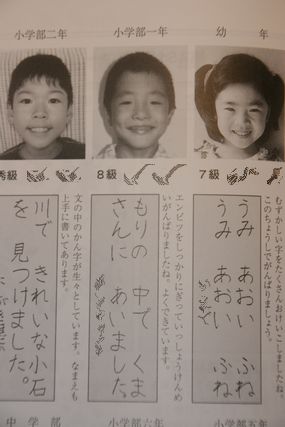 幼　年
7級
むずかしい字をたくさんおけいこしましたね。
このちょうしでがんばりましょう。
うみ　あおい　ふね
うみ　あおい　ふね
小学部一年
8級
エンピツをしっかりにぎっていっしょうけんめ
いがんばりましたね。よくできています。
もりの　中で　くま
さんに　あいました。
小学部二年
秀級
文の中のかん字が生々としています。なまえも
上手に書いてあります。
川で　きれいな小石
を　見つけました。
小学部五年
小学部六年
中学部